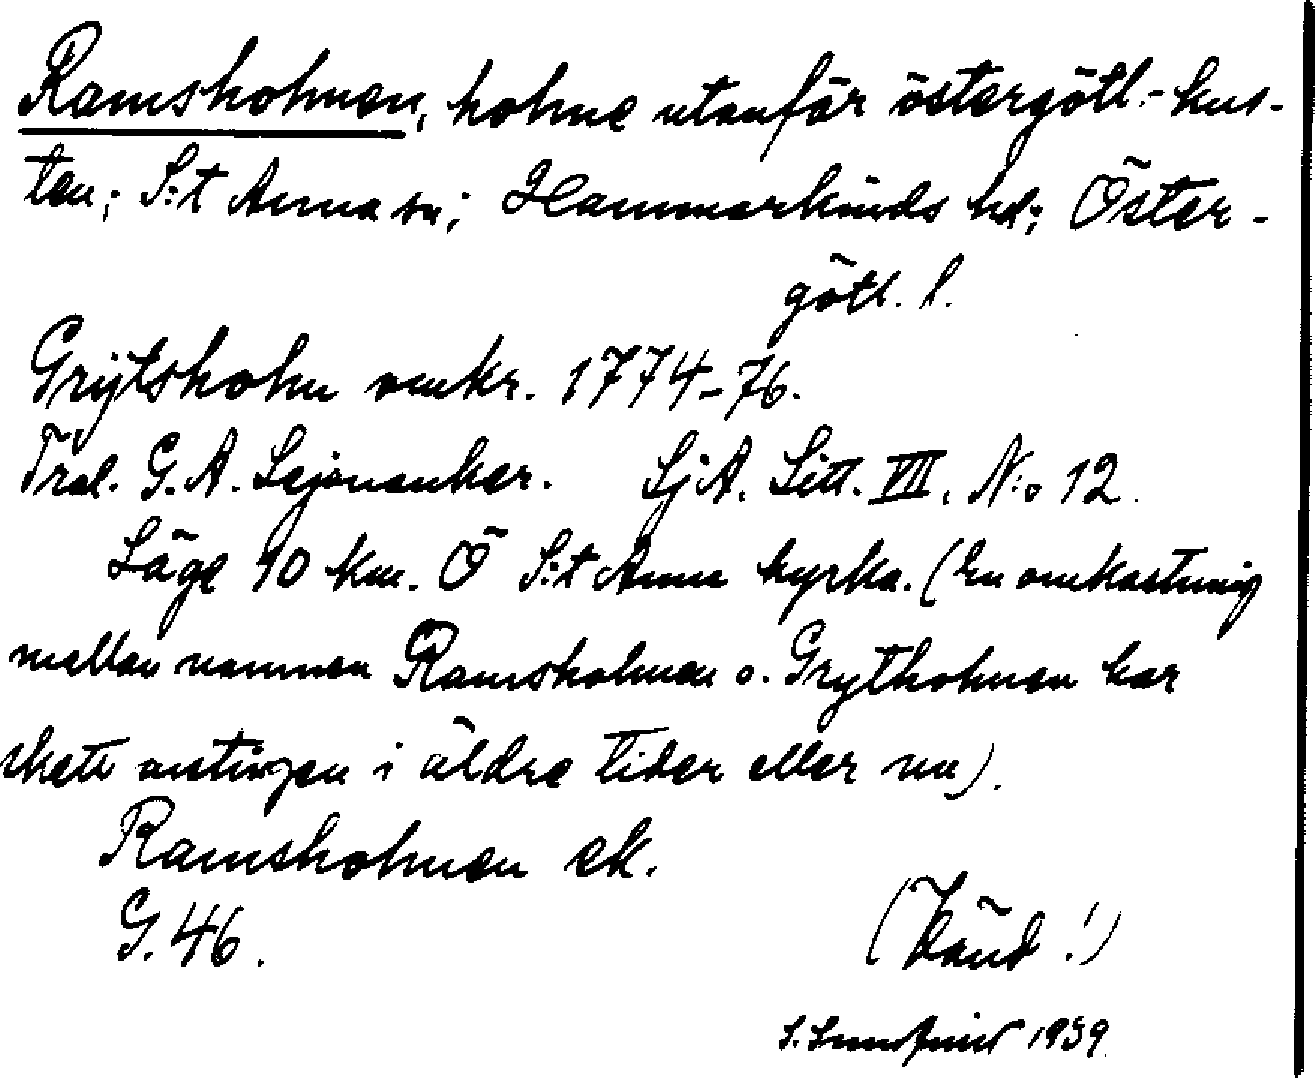 Ramsholmen, holme utanför östergötl.-kus-
ten; S:t Anna sn; Hammarkinds hd; Öster-
götl. l.
Grÿtsholm omkr. 1774-76.
Tral. G. A. Lejonanker. SjA. Litt. VII, N:o 12.
Läge 10 km. Ö S:t Anna kyrka. (En omkastning
mellan namnen Ramsholmen o. Grytholmen har
skett antingen i äldre tider eller nu).
Ramsholmen ek.
G. 46.
(Vänd!)
S. 1939